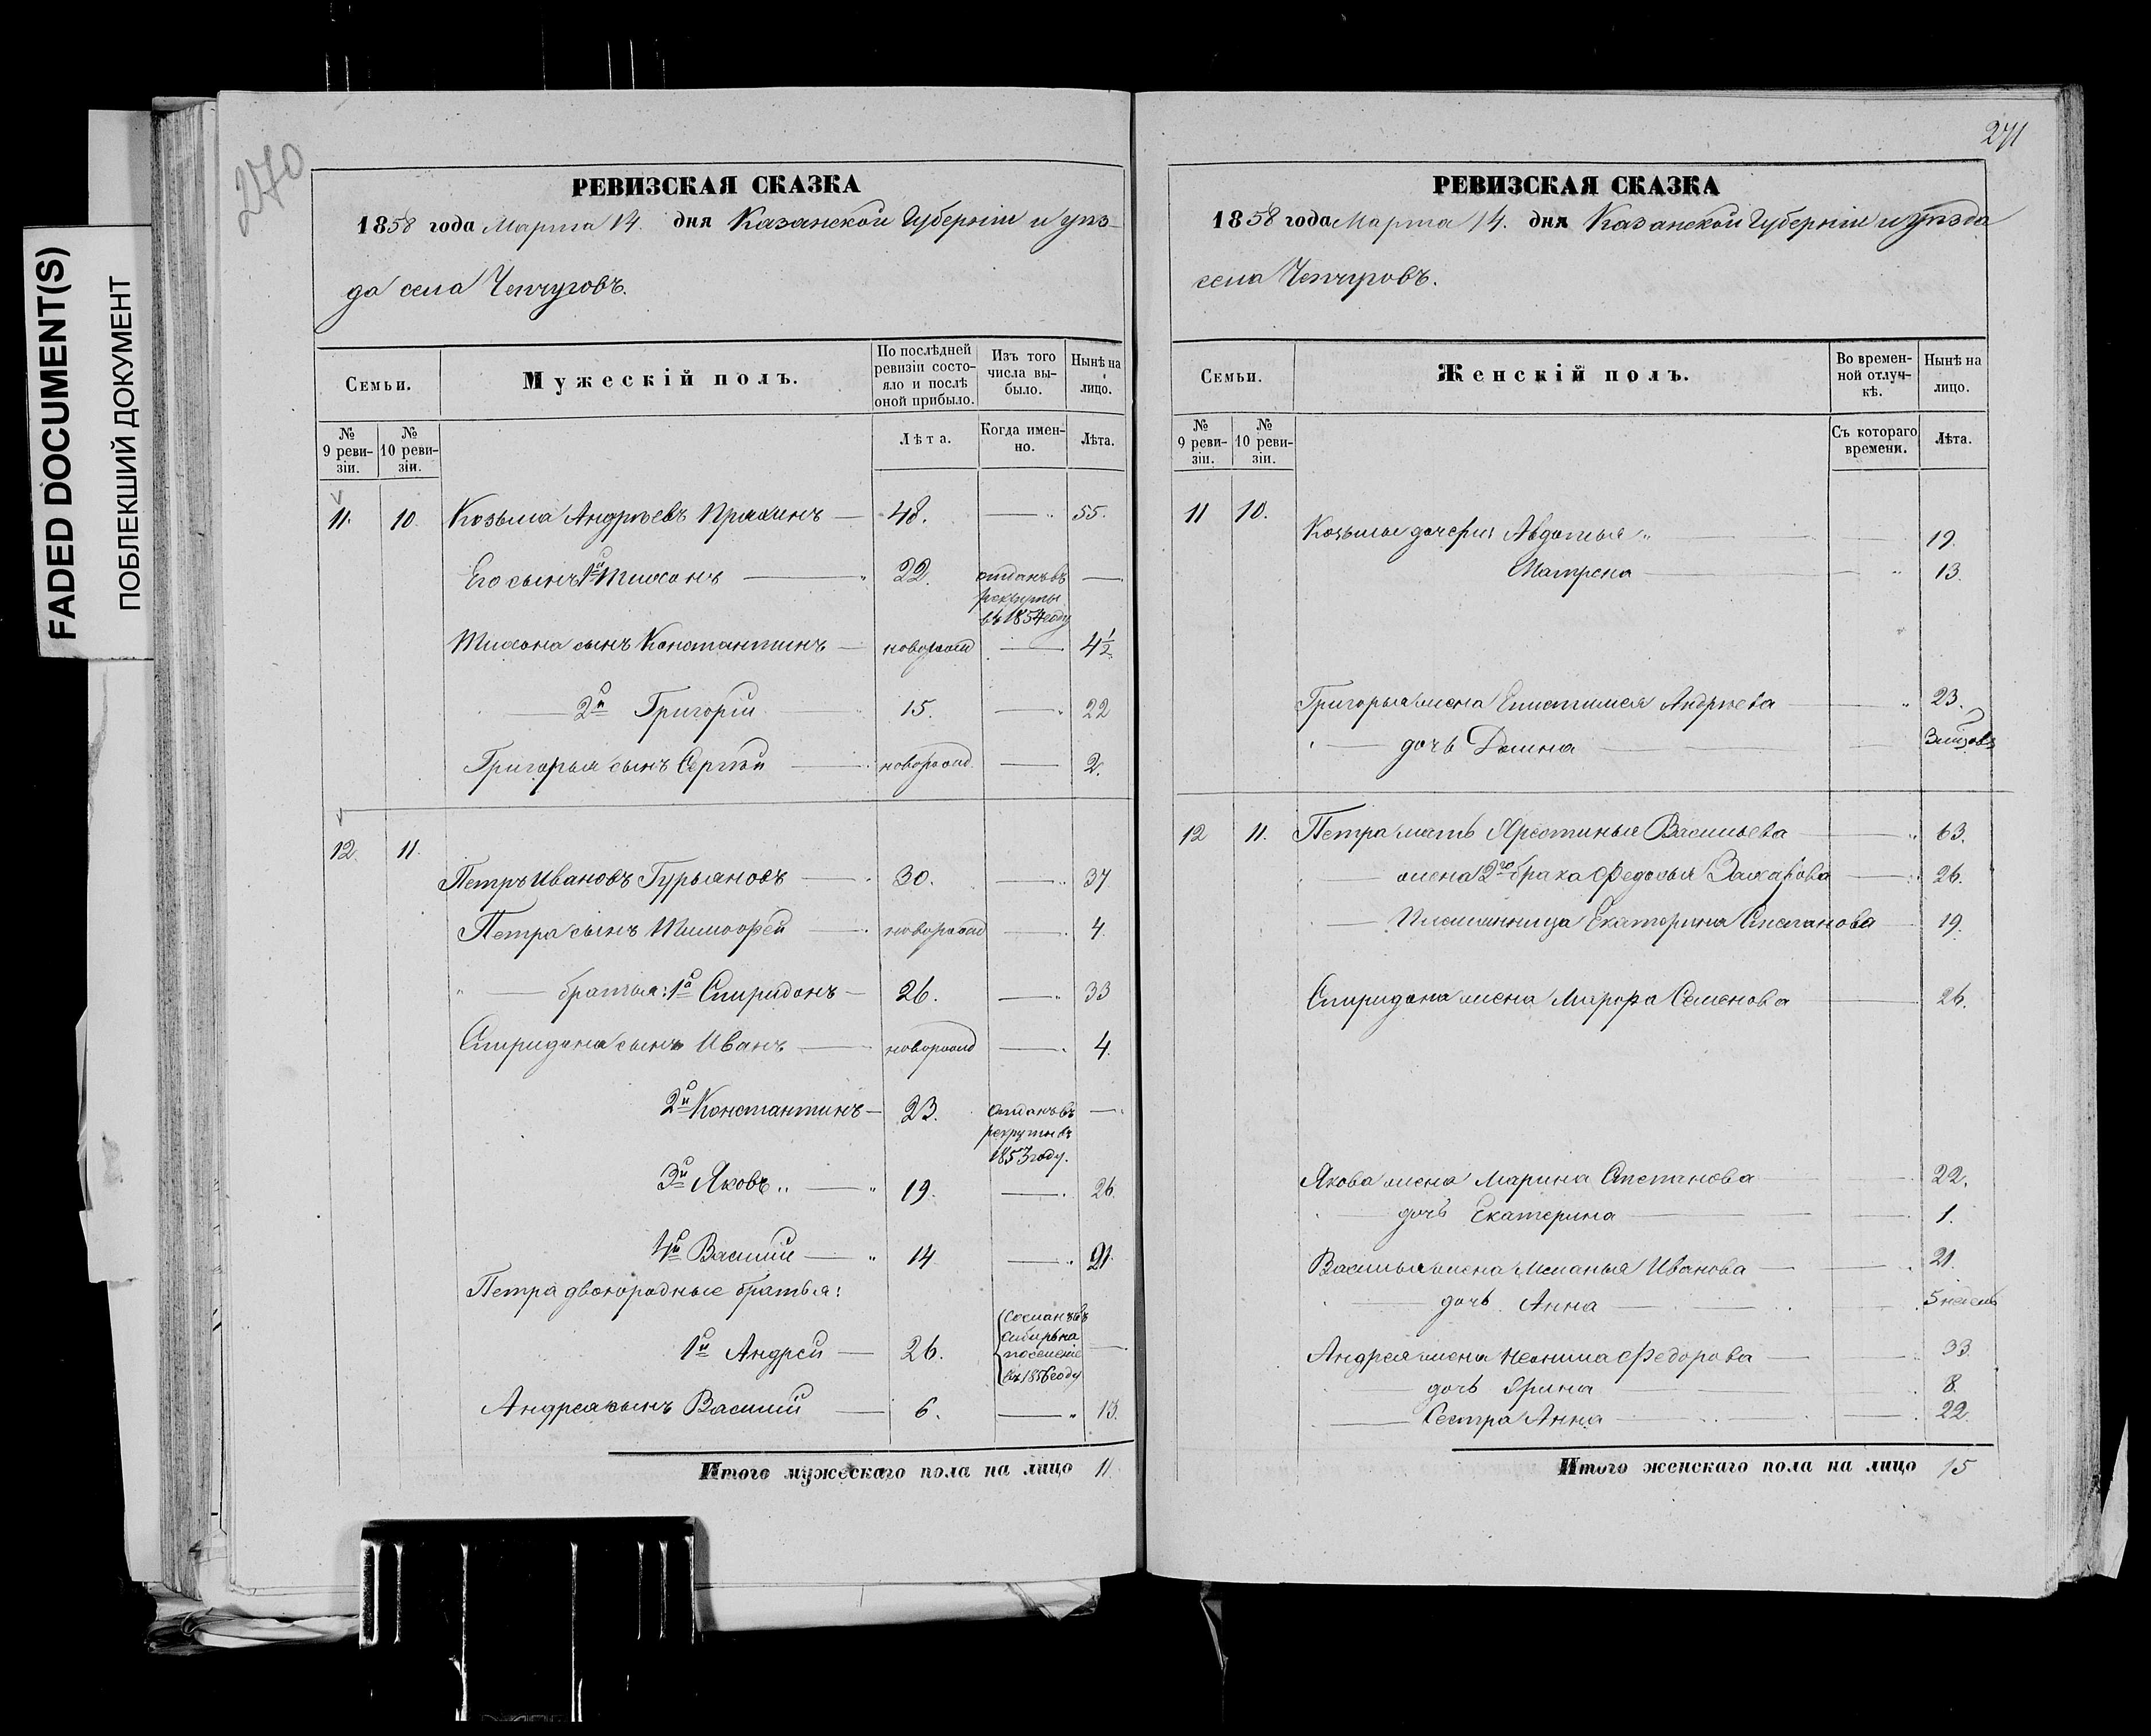 FADED DOCUMENT(S)
ПОБЛЕКШИЙ ДОКУМЕНТ
270
РЕВИЗСКАЯ СКАЗКА
1858 года Марта 14. дня Казанской Губерніи и уѣз-
да села Чепчуговъ.
Семьи.
Мужескій полъ.
По послѣдней ревизіи состо-яло и послѣ оной прибыло.
Изъ того числа вы-было.
Нынѣ на лицо.
№ 9 реви-зіи.
№ 10 реви-зіи.
Лѣта.
Когда имен-но.
Лѣта.
11. 10. Козьма Андрѣевъ 48. 55.
Его сынъ 1й Тихонъ 22. отданъ въ рекруты въ 1854 году
Тихона сынъ Константинъ новорожд 4½
2й Григорій 15. 22
Григорья сынъ Сергѣй новорожд. 2.
12. 11.
Петръ Ивановъ Гурьяновъ 30. 37
Петра сынъ Тимофей новорожд 4.
братья: 1й Спиридонъ 26. 33
Спиридона сынъ Иванъ новорожд 4.
2й Константинъ 23. отданъ въ рекруты въ 1853 году.
3й Яковъ 19. 26.
4й Василій 14 21.
Петра двоюродные братья:
1й Андрей 26. Сосланъ въ сибирь на поселеніе въ 1856 году
Андрея сынъ Василій 6. 13.
Итого мужескаго пола на лицо 11.
271
РЕВИЗСКАЯ СКАЗКА
1858 года Марта 14. дня Казанской Губерніи и уѣзда
села Чепчуговъ.
Семьи.
Женскій полъ.
Во времен-ной отлуч-кѣ.
Нынѣ на лицо.
№ 9 реви-зіи.
№ 10 реви-зіи.
Съ котораго времени.
Лѣта.
11 10.
Козьмы дочери: Авдотья 19.
Матрена 13.
Григорья жена Епистимея Андрѣева 23.
дочь Домна
12 11. Петра мать Христинья Васильева 63.
жена 2го брака Федосья Захарова 26.
Племянница Екатерина Степанова 19.
Спиридона жена Марфа Семенова 26.
Якова жена Марина Степанова 22.
дочь Екатерина 1.
Василья жена Меланья Иванова 21.
дочь Анна 5 недель
Андрея жена Неонила Федорова 33
дочь Ирина 8.
Сестра Анна 22.
Итого женскаго пола на лицо 15